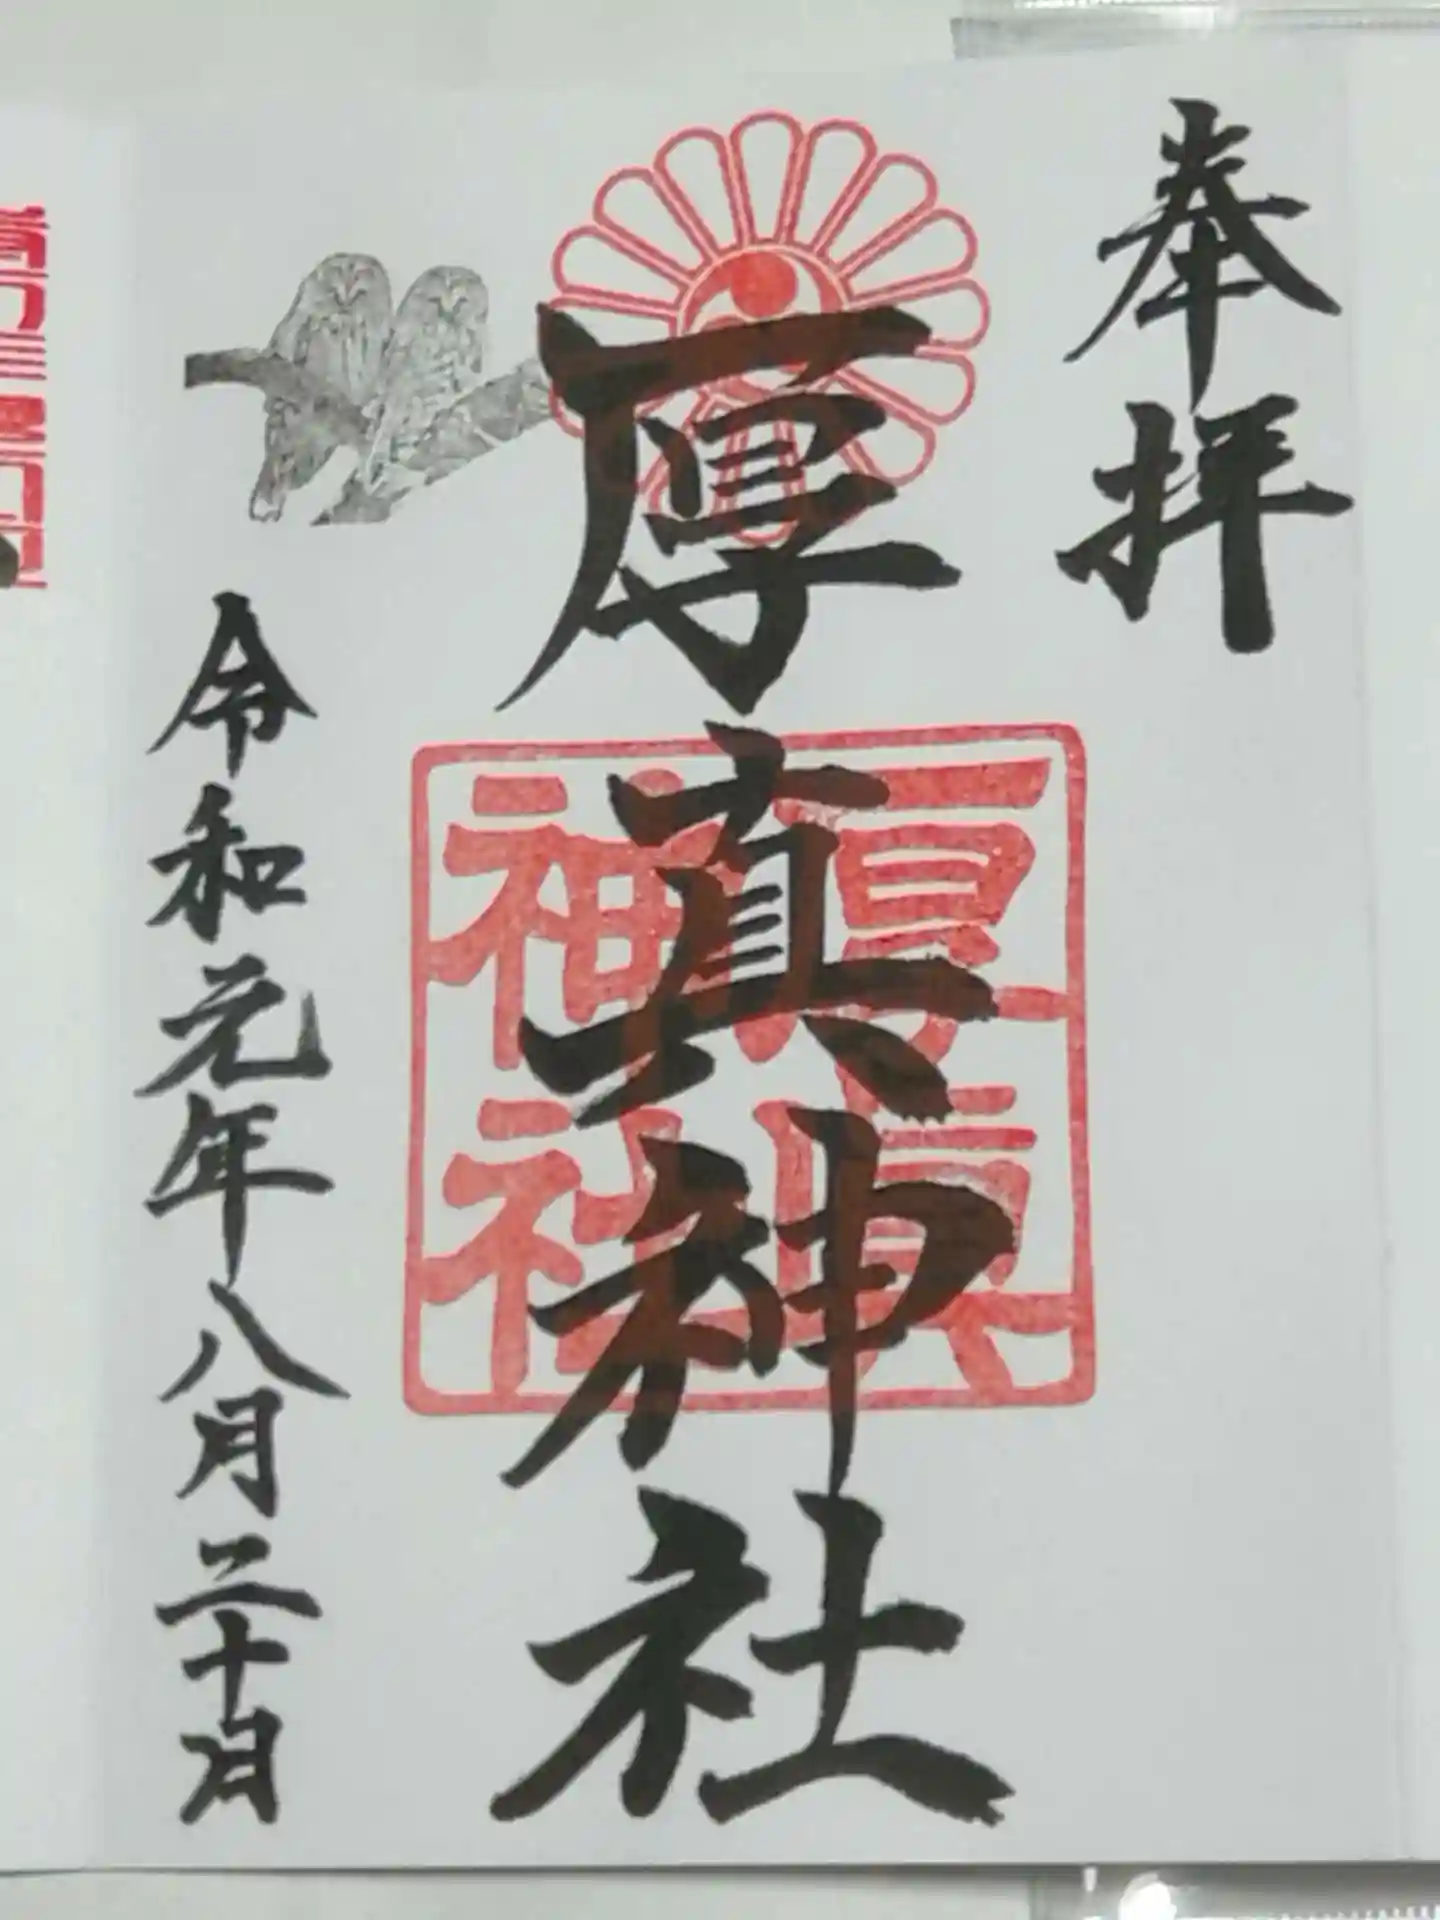 奉拝
厚真神社
厚眞
神社
令和元年八月二十日